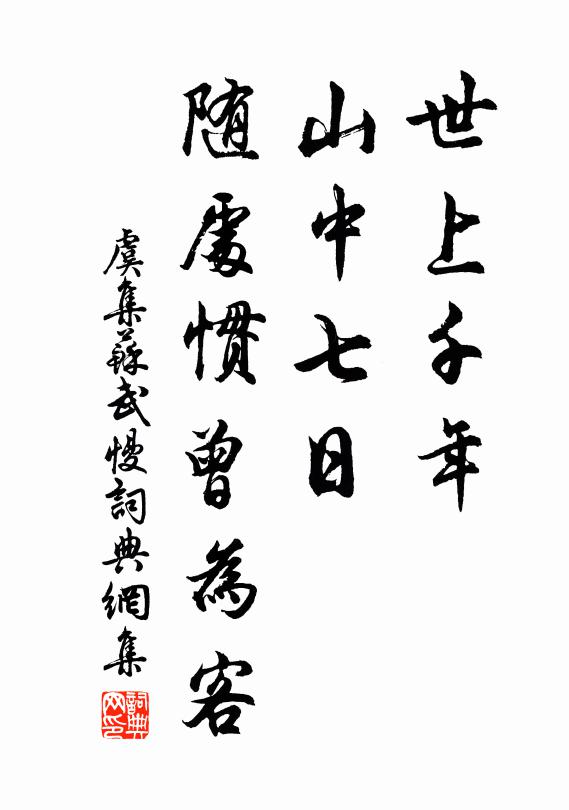 世上千年
山中七日
随處慣曾為客
虞集蘇武慢詞典網集
詞典網印